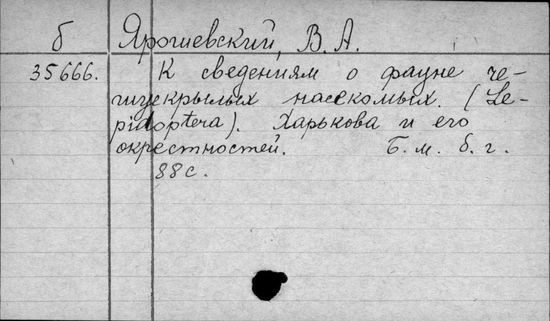 б Ярошевский, В. А.
35666. К сведениям о фауне че-
шуекрылых насекомых. (Le-
pidoptera). Харькова и его
окрестностей. Б. м. б. г.
88 с.